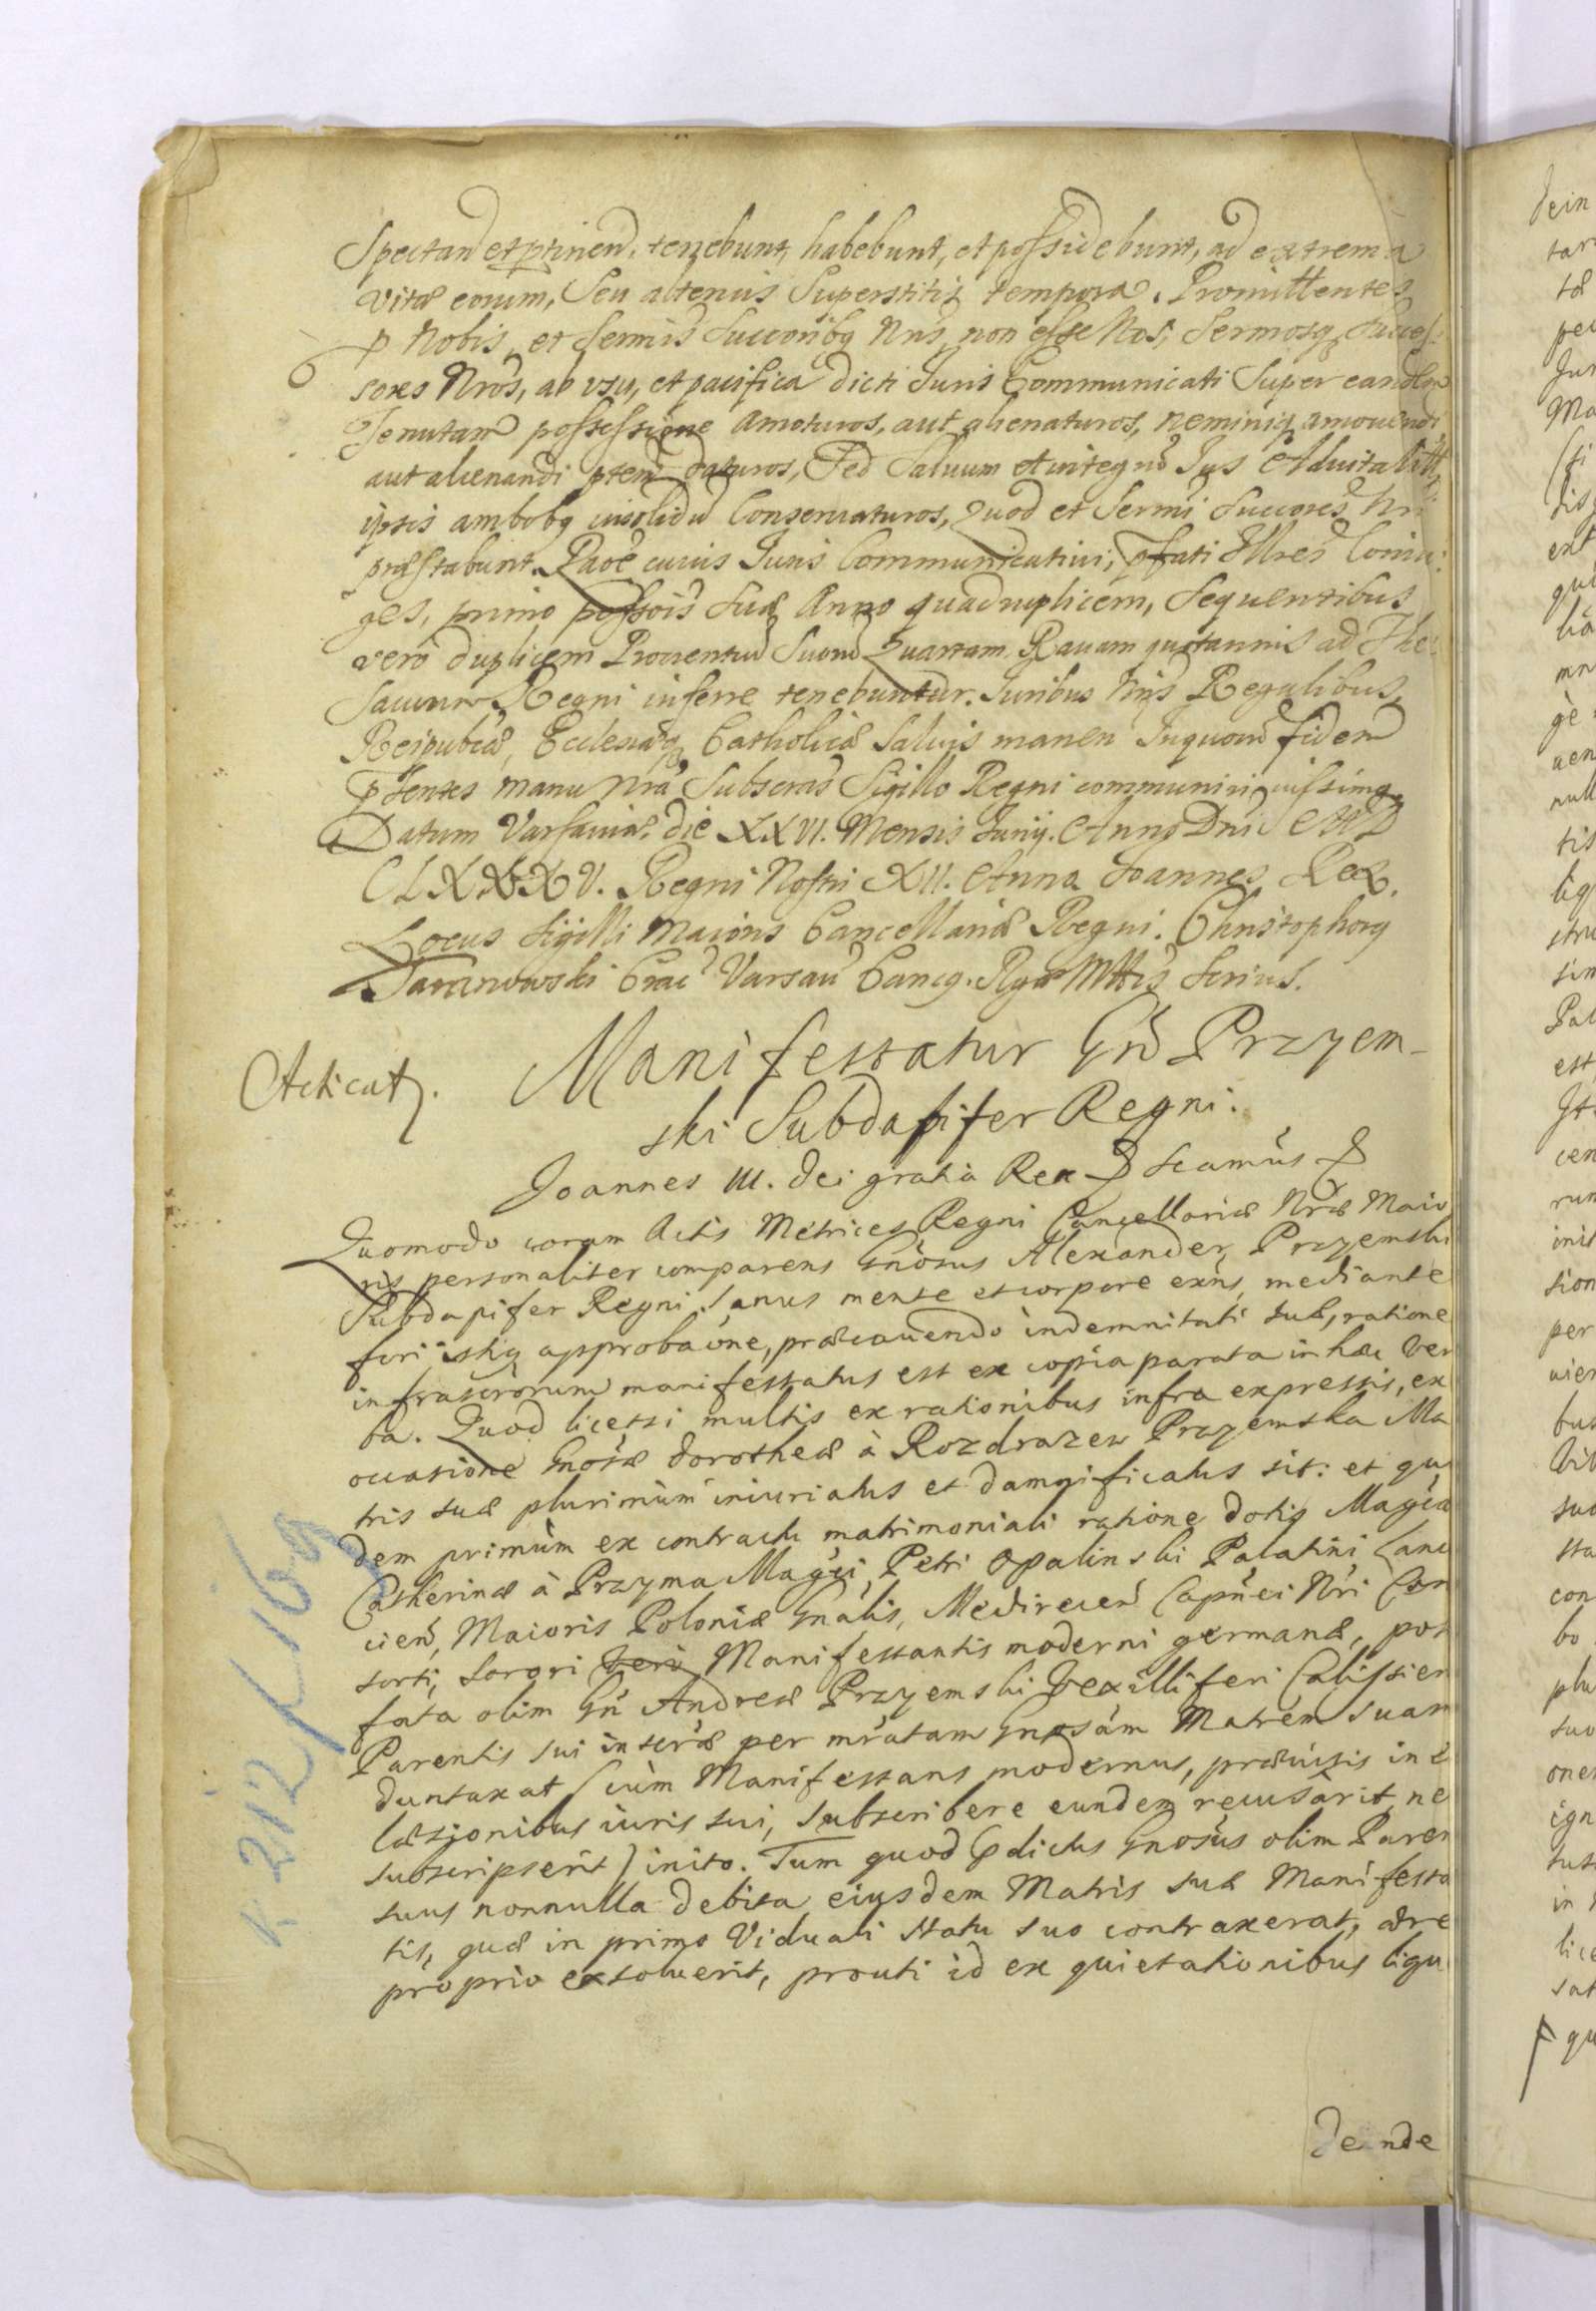 Spectand et ptinend. tenebunt, habebunt, et possidebunt, ad extrema
vitæ eorum, Seu alterius Superstitis tempora. Promittentes
p Nobis, et Sermis Succoribq Nris, non esse Nos, Sermosq Succes-
sores Nros, ab vsu, et pacifica dicti Juris Communicati Super eandem
Tenutam possessione amoturos, aut alienaturos, neminiq amouendi,
aut alienandi ptem daturos, Sed Saluum et integrum Jus Aduitalitt:
ipsis ambobq insolidū Conseruaturos, Quod et Sermi Succores Nri
præstabunt. Raōe cuius Juris Communicatiui, pfati Illres Coniu:
ges, primo possois Suæ Anno quadruplicem, Sequentibus
vero duplicem Prouentuū Suorū Quartam Rauam quotannis ad The:
saurum Regni inferre tenebuntur. Juribus Nris Regalibus,
Reipubcæ, Ecclesiæq Catholicæ Saluis manen Inquorū fidem
Pntes manu Nra Subscras Sigillo Regni communiri iussimq.
Datum Varsauiæ die XXVI. Mensis Junij. Anno Dni MD
CLXXXV. Regni Nostri XII. Anno Joannes Rex.
Locus Sigilli Maioris Cancellariæ Regni. Christophorq
Taranowski Crac Varsau Cancg. Rgæ Mttis Secrius.
Acticatz. Manifestatur Gnd Przyem-
ski Subdapifer Regni.
Joannes III. Dei gratia Rex & Scamus &
Quomodo coram Actis Metrices Regni Cancellariæ Nræ Maio
ris personaliter comparens Gnosus Alexander, Przyemski
Subdapifer Regni, Sanus mente et corpore exns, mediante
fori istiq approbaōne, præcauendo indemnitati suæ, ratione
infrascrorum manifestatus est ex copia parata in hæc ver
ba. Quod licetsi multis ex rationibus infra expressis, ex
occasione Gnosæ Dorotheæ à Rozdrazew Przyemska Ma
tris suæ plurimùm iniuriatus et damnificatus sit: et qui
dem primùm ex contractu matrimoniali ratione dotis Magcæ
Catherinæ à Przyma Magci Petri Opalinski Palatini Lanci
cien, Maioris Poloniæ Gnalis, Miedirecen Capnei Nri Con
sorti, sorori veri Manifestantis moderni germanæ, post
fata olim Gn Andreæ Przyemski Vexilliferi Calissien
Parentis sui interæ per mratam Gnosam Matrem suam
duntaxat (cùm Manifestans modernus, præuisis in e
læsionibus iuris sui, subscribere eundem recusarit, ne
subscripserit) inito. Tum quod pdictus Gnosus olim Paren
suus nonnulla debita eiusdem Matris suæ Manifesta
tis, quæ in primo Viduali statu suo contraxerat, ære
proprio exsoluerit, prouti id ex quietationibus liqu
Deinde